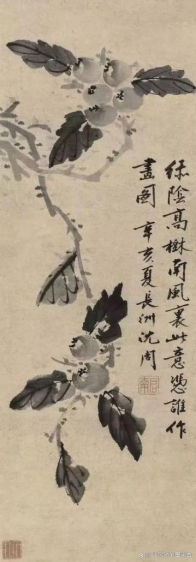 綠陰高樹南風裏此意憑誰作
畫圖 辛亥夏長洲沈周